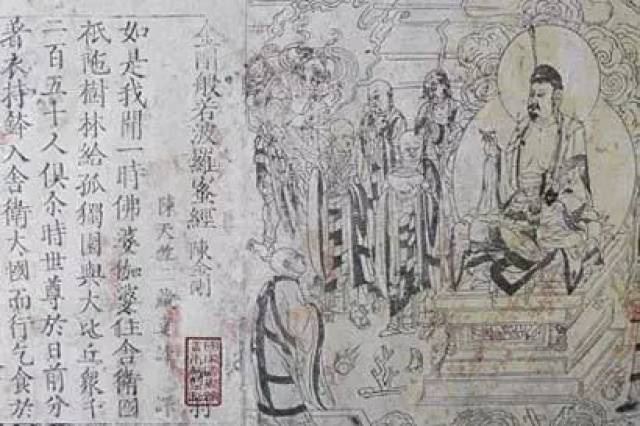 金剛般若波羅蜜經 陳金刚
陳天竺三藏真諦
如是我聞一時佛婆伽婆住舍衛國
祇陁樹林給孤獨園與大比丘衆千
二百五十人俱尒時世尊於日前分
著衣持鉢入舍衛大國而行乞食於